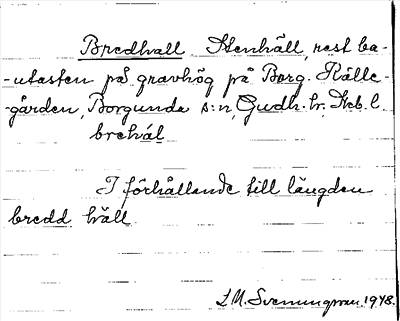 Bredhall Stenhäll, rest ba-
-utasten på gravhög på Borg. Källe-
-gården, Borgunda s:n, Gudh. hr, Skb. l.
brehäl
I förhållande till längden
bredd häll
L M. Svenungsson. 1948.